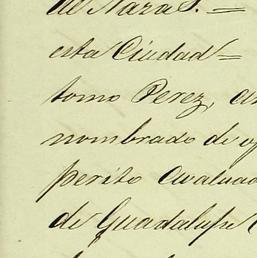 de Nara S. =
esta Ciudad =
tomo Perez,
nombrado de
perito Avaluad
de Guadalupe